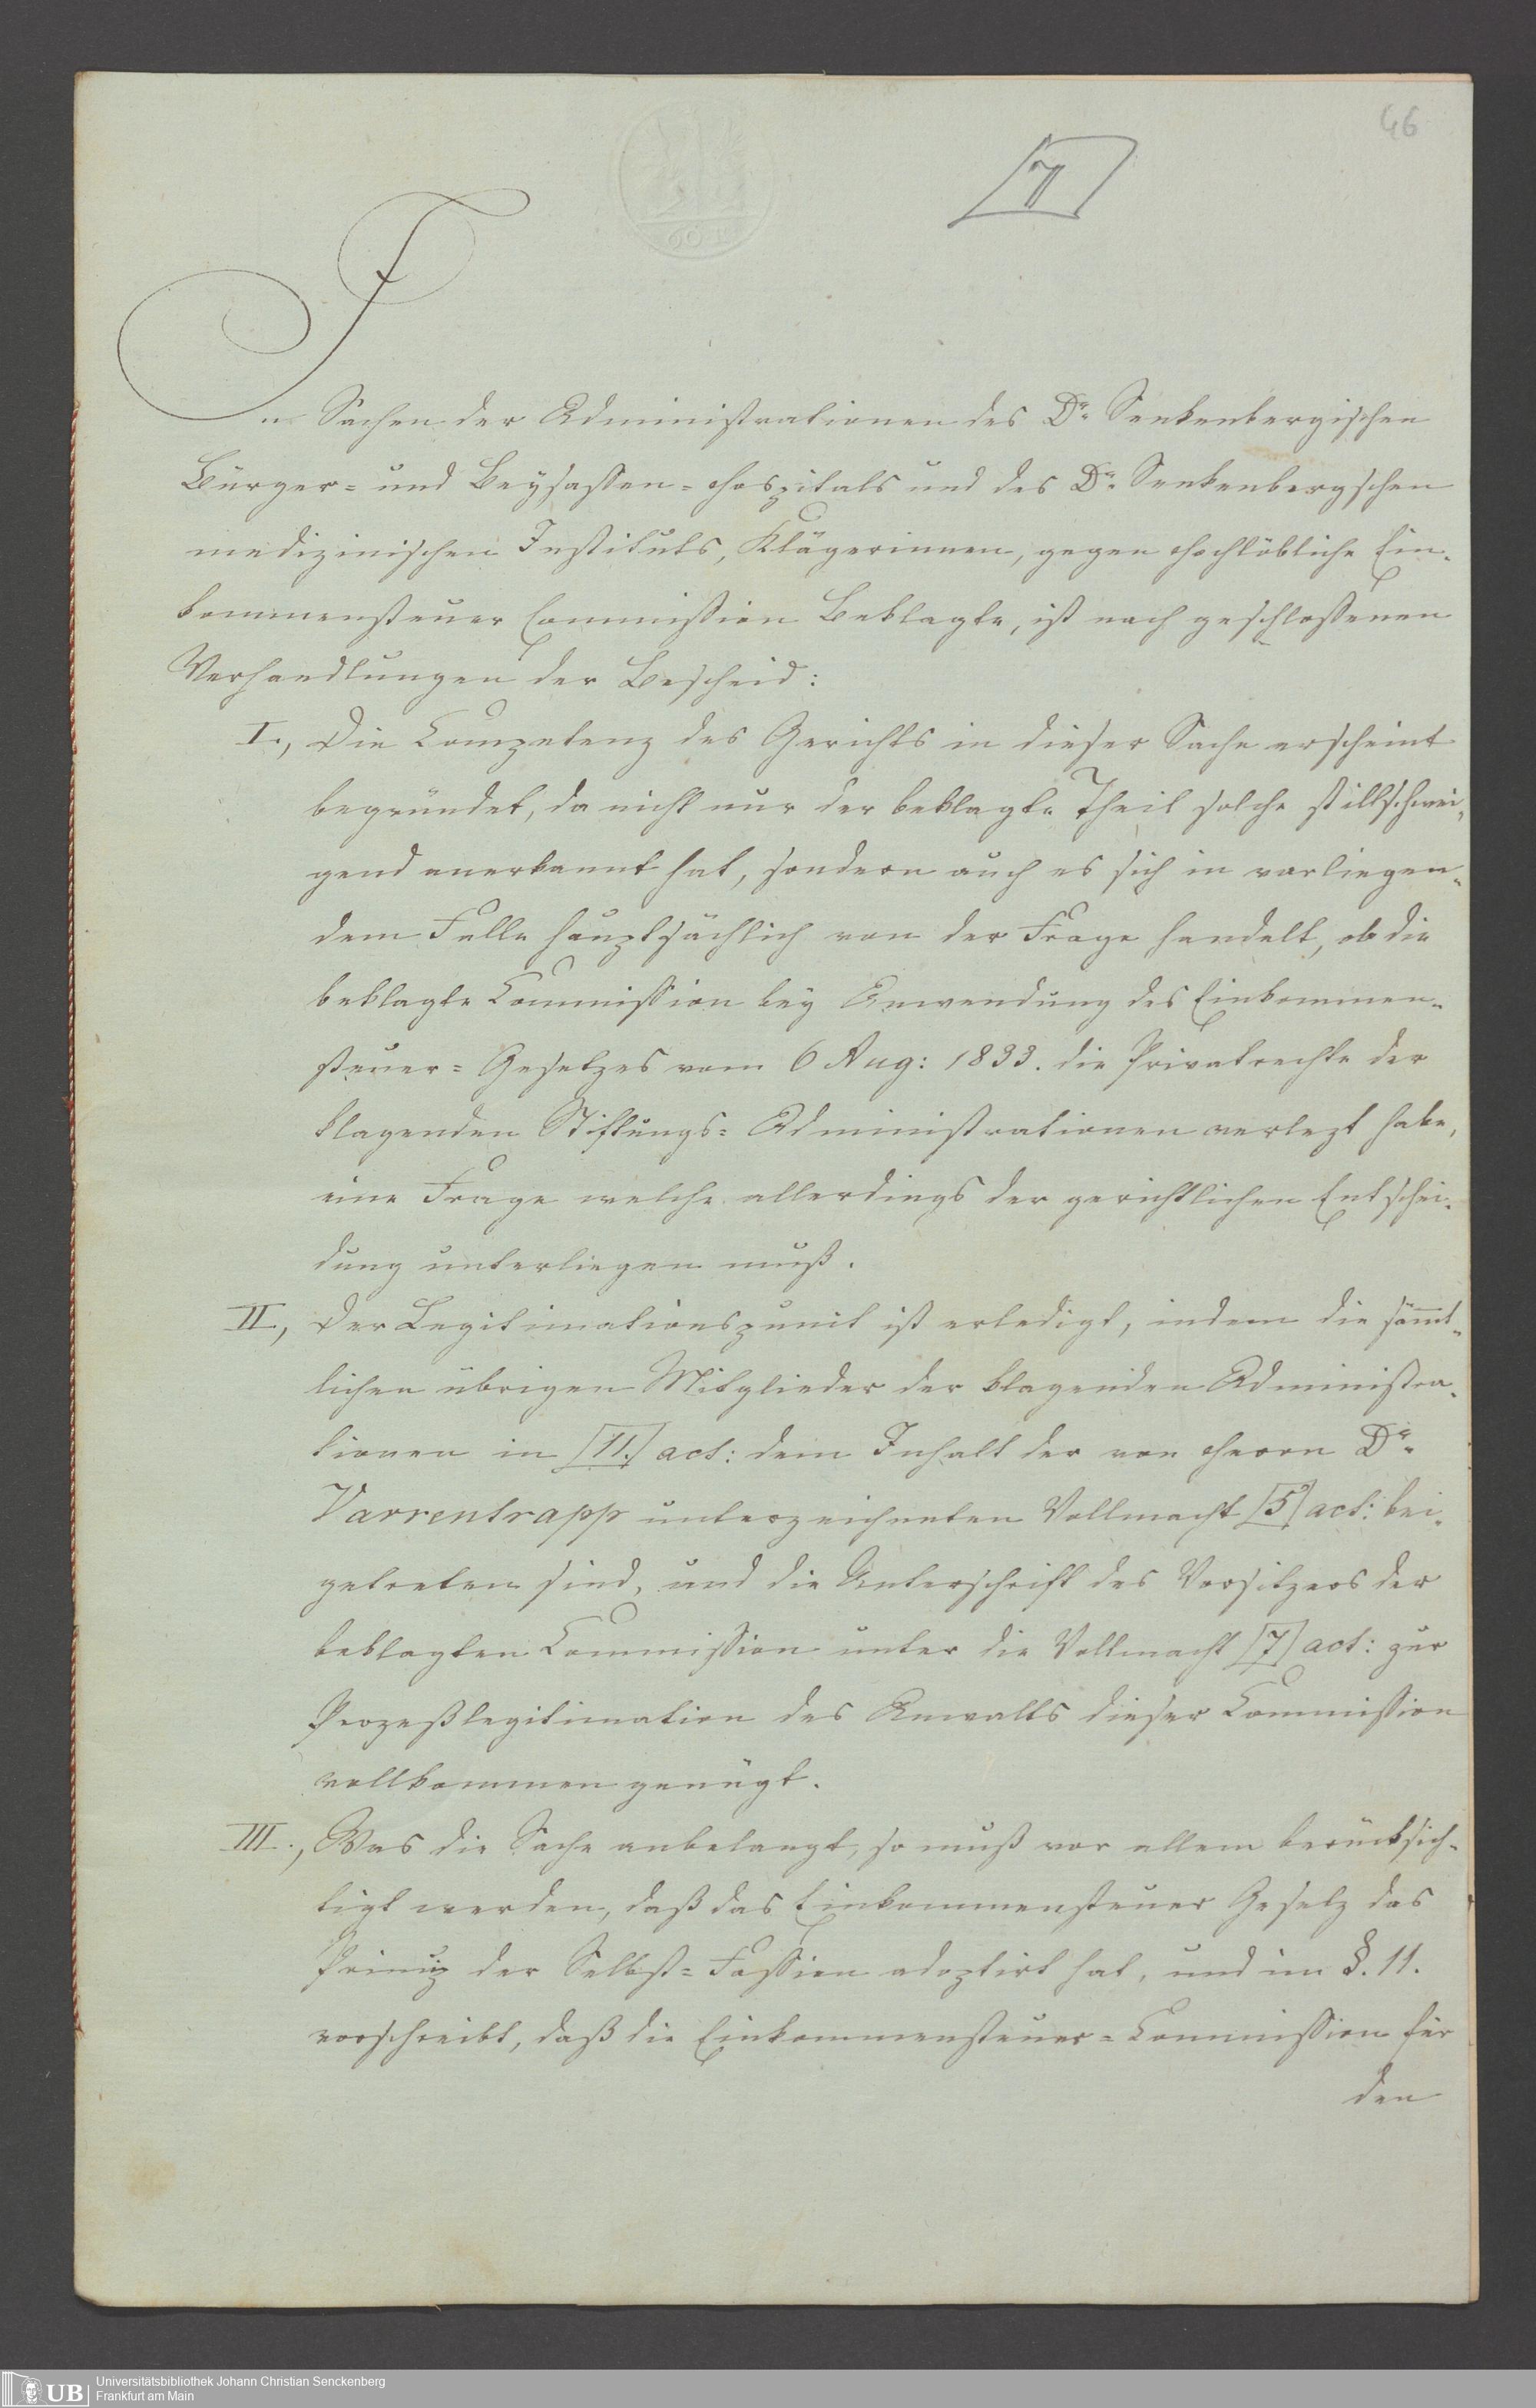 46
7
In Sachen der Administrationen des Dr. Senkenbergischen
Bürger= und Beysassen=Hospitals und des Dr. Senkenbergschen
medizinischen Instituts, Klägerinnen, gegen Hochlöbliche Ein-
kommensteuer Commission Beklagte, ist nach geschlossenen
Verhandlungen der Bescheid:
I., Die Competenz des Gerichts in dieser Sache erscheint
begründet, da nicht nur der beklagte Theil solche stillschwei-
gend anerkannt hat, sondern auch es sich in vorliegen-
dem Falle hauptsächlich von der Frage handelt, ob die
beklagte Commission bey Anwendung des Einkommen-
steuer=Gesetzes vom 6 Aug: 1833. die Privatrechte der
klagenden Stiftungs=Administrationen verlezt habe,
eine Frage welche allerdings der gerichtlichen Entschei-
dung unterliegen muß.
II., Der Legitimationspunct ist erledigt, indem die sämmt-
lichen übrigen Mitglieder der klagenden Administra-
tionen in [11.] act: dem Inhalt der von Herrn Dr.
Varrentrapp unterzeichneten Vollmacht [5] act: bei-
getreten sind, und die Unterschrift des Vorsitzers der
beklagten Commission unter die Vollmacht [7] act: zur
Prozeßlegitimation des Anwalts dieser Commission
vollkommen genügt.
III., Was die Sache anbelangt, so muß vor allem berücksich-
tigt werden, daß das Einkommensteuer Gesetz das
Prinzip der Selbst=Fassion adoptirt hat, und im §. 11.
vorschreibt, daß die Einkommensteuer=Commission für
den
UB
Universitätsbibliothek Johann Christian Senckenberg
Frankfurt am Main